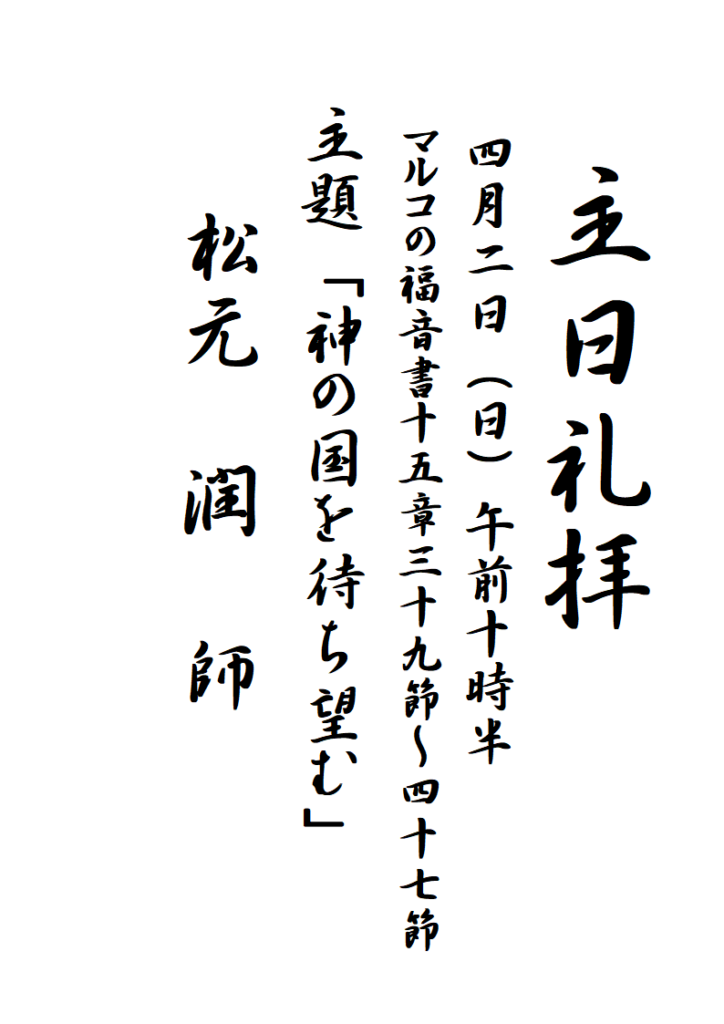 主日礼拝
四月二日（日）午前十時半
マルコの福音書十五章三十九節～四十七節
主題「神の国を待ち望む」
松元 潤 師